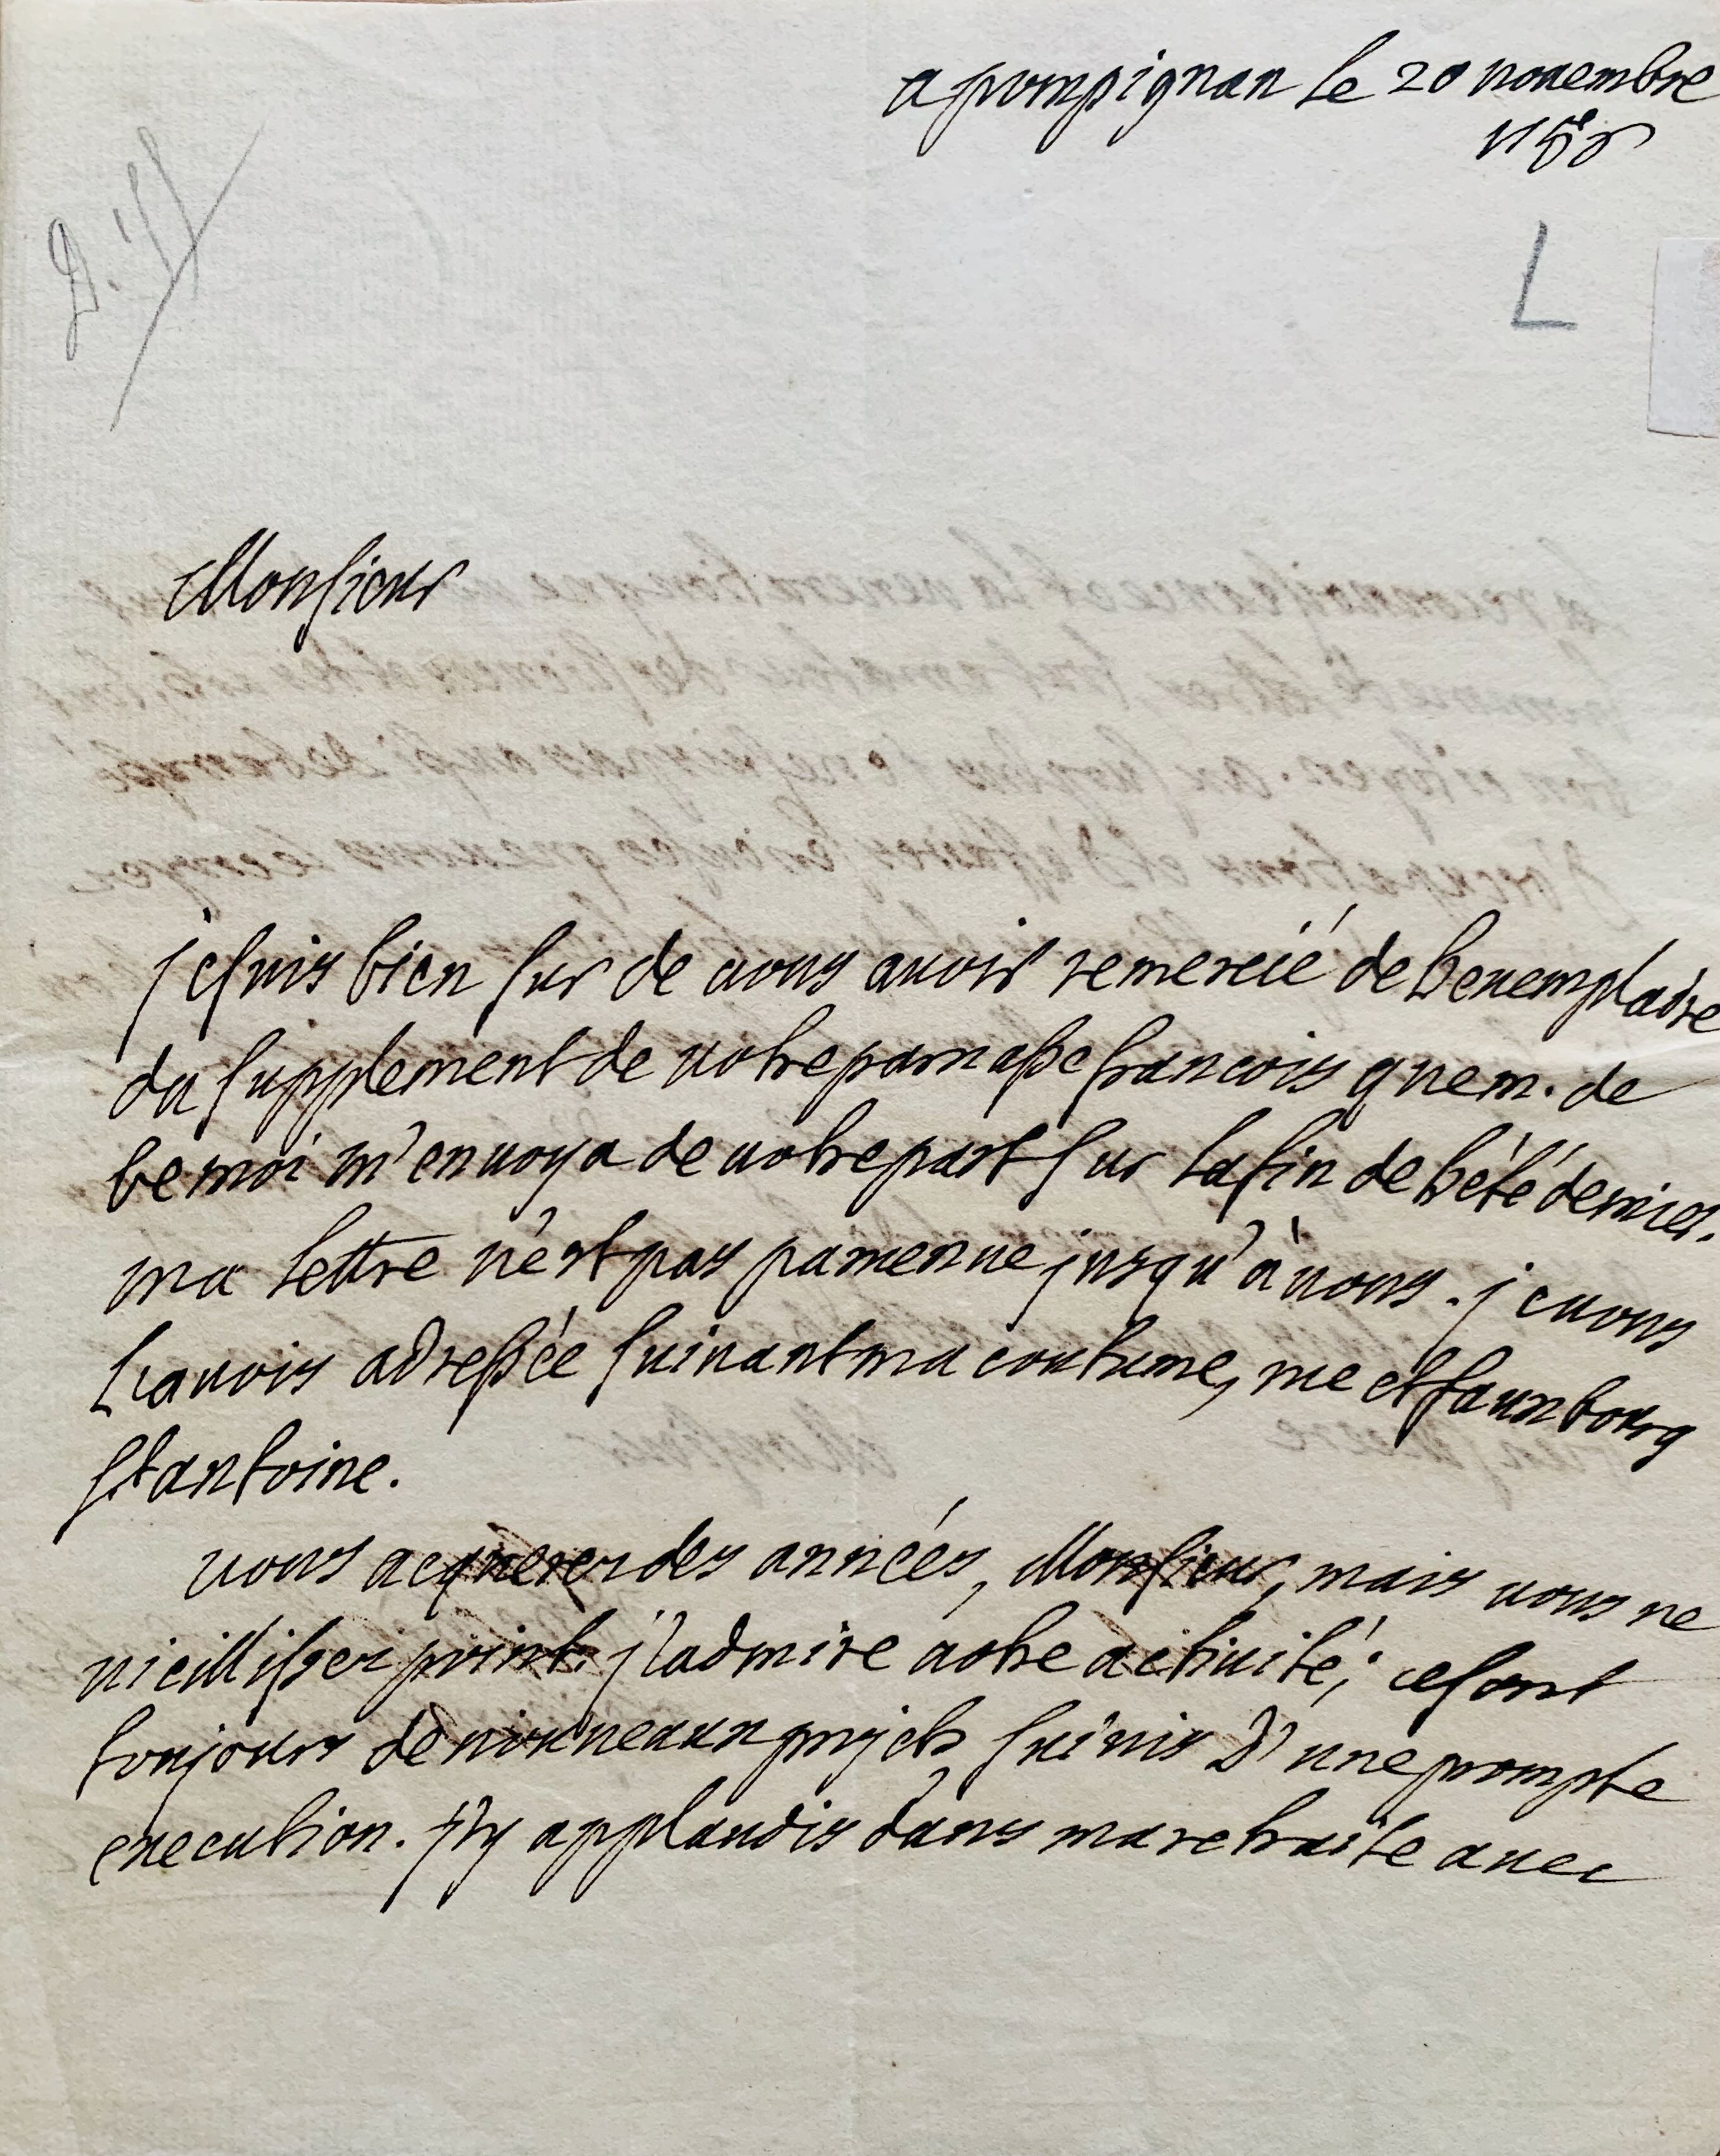 a pompignan le 20 novembre
L
Monsieur
je suis bien sur de vous avoir remercié de l'exemplaire
du supplement de votre parnasse francois que m. de
bemoi m'envoya de votre part sur la fin de l'été dernier.
ma lettre n'est pas parvenue jusqu'à vous. je vous
l'avois adressée suivant ma coutume, rue et fauxbourg
st antoine.
vous acquerez des années, Monsieur, mais vous ne
vieillissez point. j'admire votre activité; ce sont
toujours de nouveaux projets suivis d'une prompte
execution. j'y applaudis dans ma retraite avec